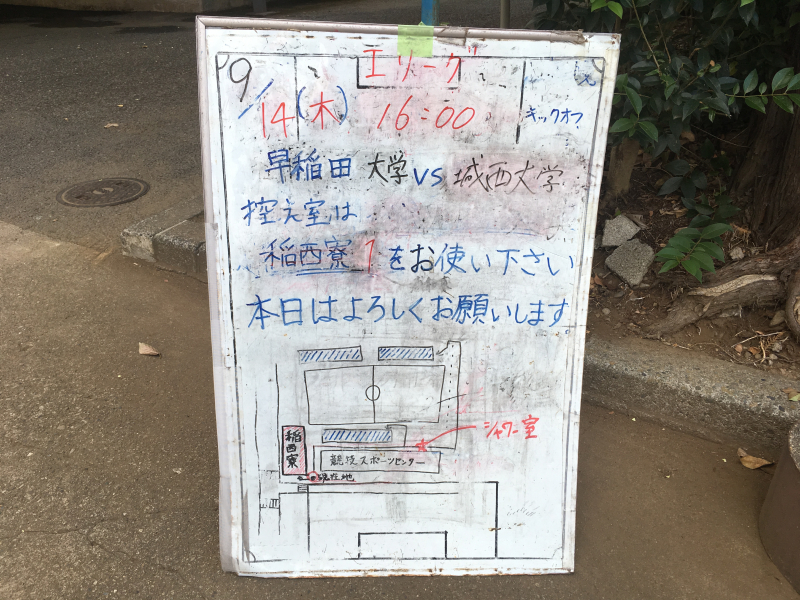 エリーグ
9/14(木) 16:00 キックオフ
早稲田大学 vs 城西大学
控え室は
稲西寮1をお使い下さい
本日はよろしくお願いします。
シャワー室
稲西寮
競技スポーツセンター
現在地